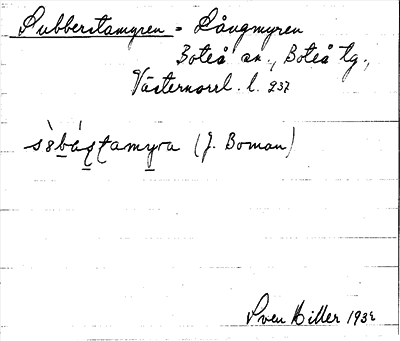 Subberstamyren = Långmyren
Boteå sn., Boteå tg.,
Västernorrl. l. 237
(J. Boman)
Sven Hiller 1932